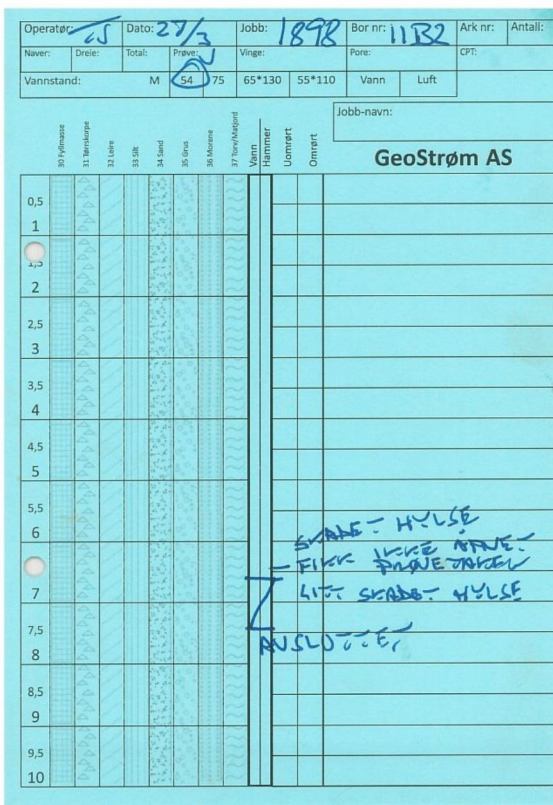 Operatør: TS Dato: 27/3 Jobb: 1898 Bor nr: 11B2 Ark nr: Antall:
Naver: Dreie: Total: Prøve: Vinge: Pore: CPT:
Vannstand: M 54 75 65*130 55*110 Vann Luft
Jobb-navn:
GeoStrøm AS
30 Fyllmasse 31 Tørrskorpe 32 Leire 33 Silt 34 Sand 35 Grus 36 Morene 37 Torv/Matjord Vann Hammer Uomrørt Omrørt
0,5
1
1,5
2
2,5
3
3,5
4
4,5
5
5,5
6
SKADET HYLSE
- FIKK IKKE ÅPNET
PRØVETAKER
7
LITT SKADET HYLSE
7,5
AVSLUTTET
8
8,5
9
9,5
10